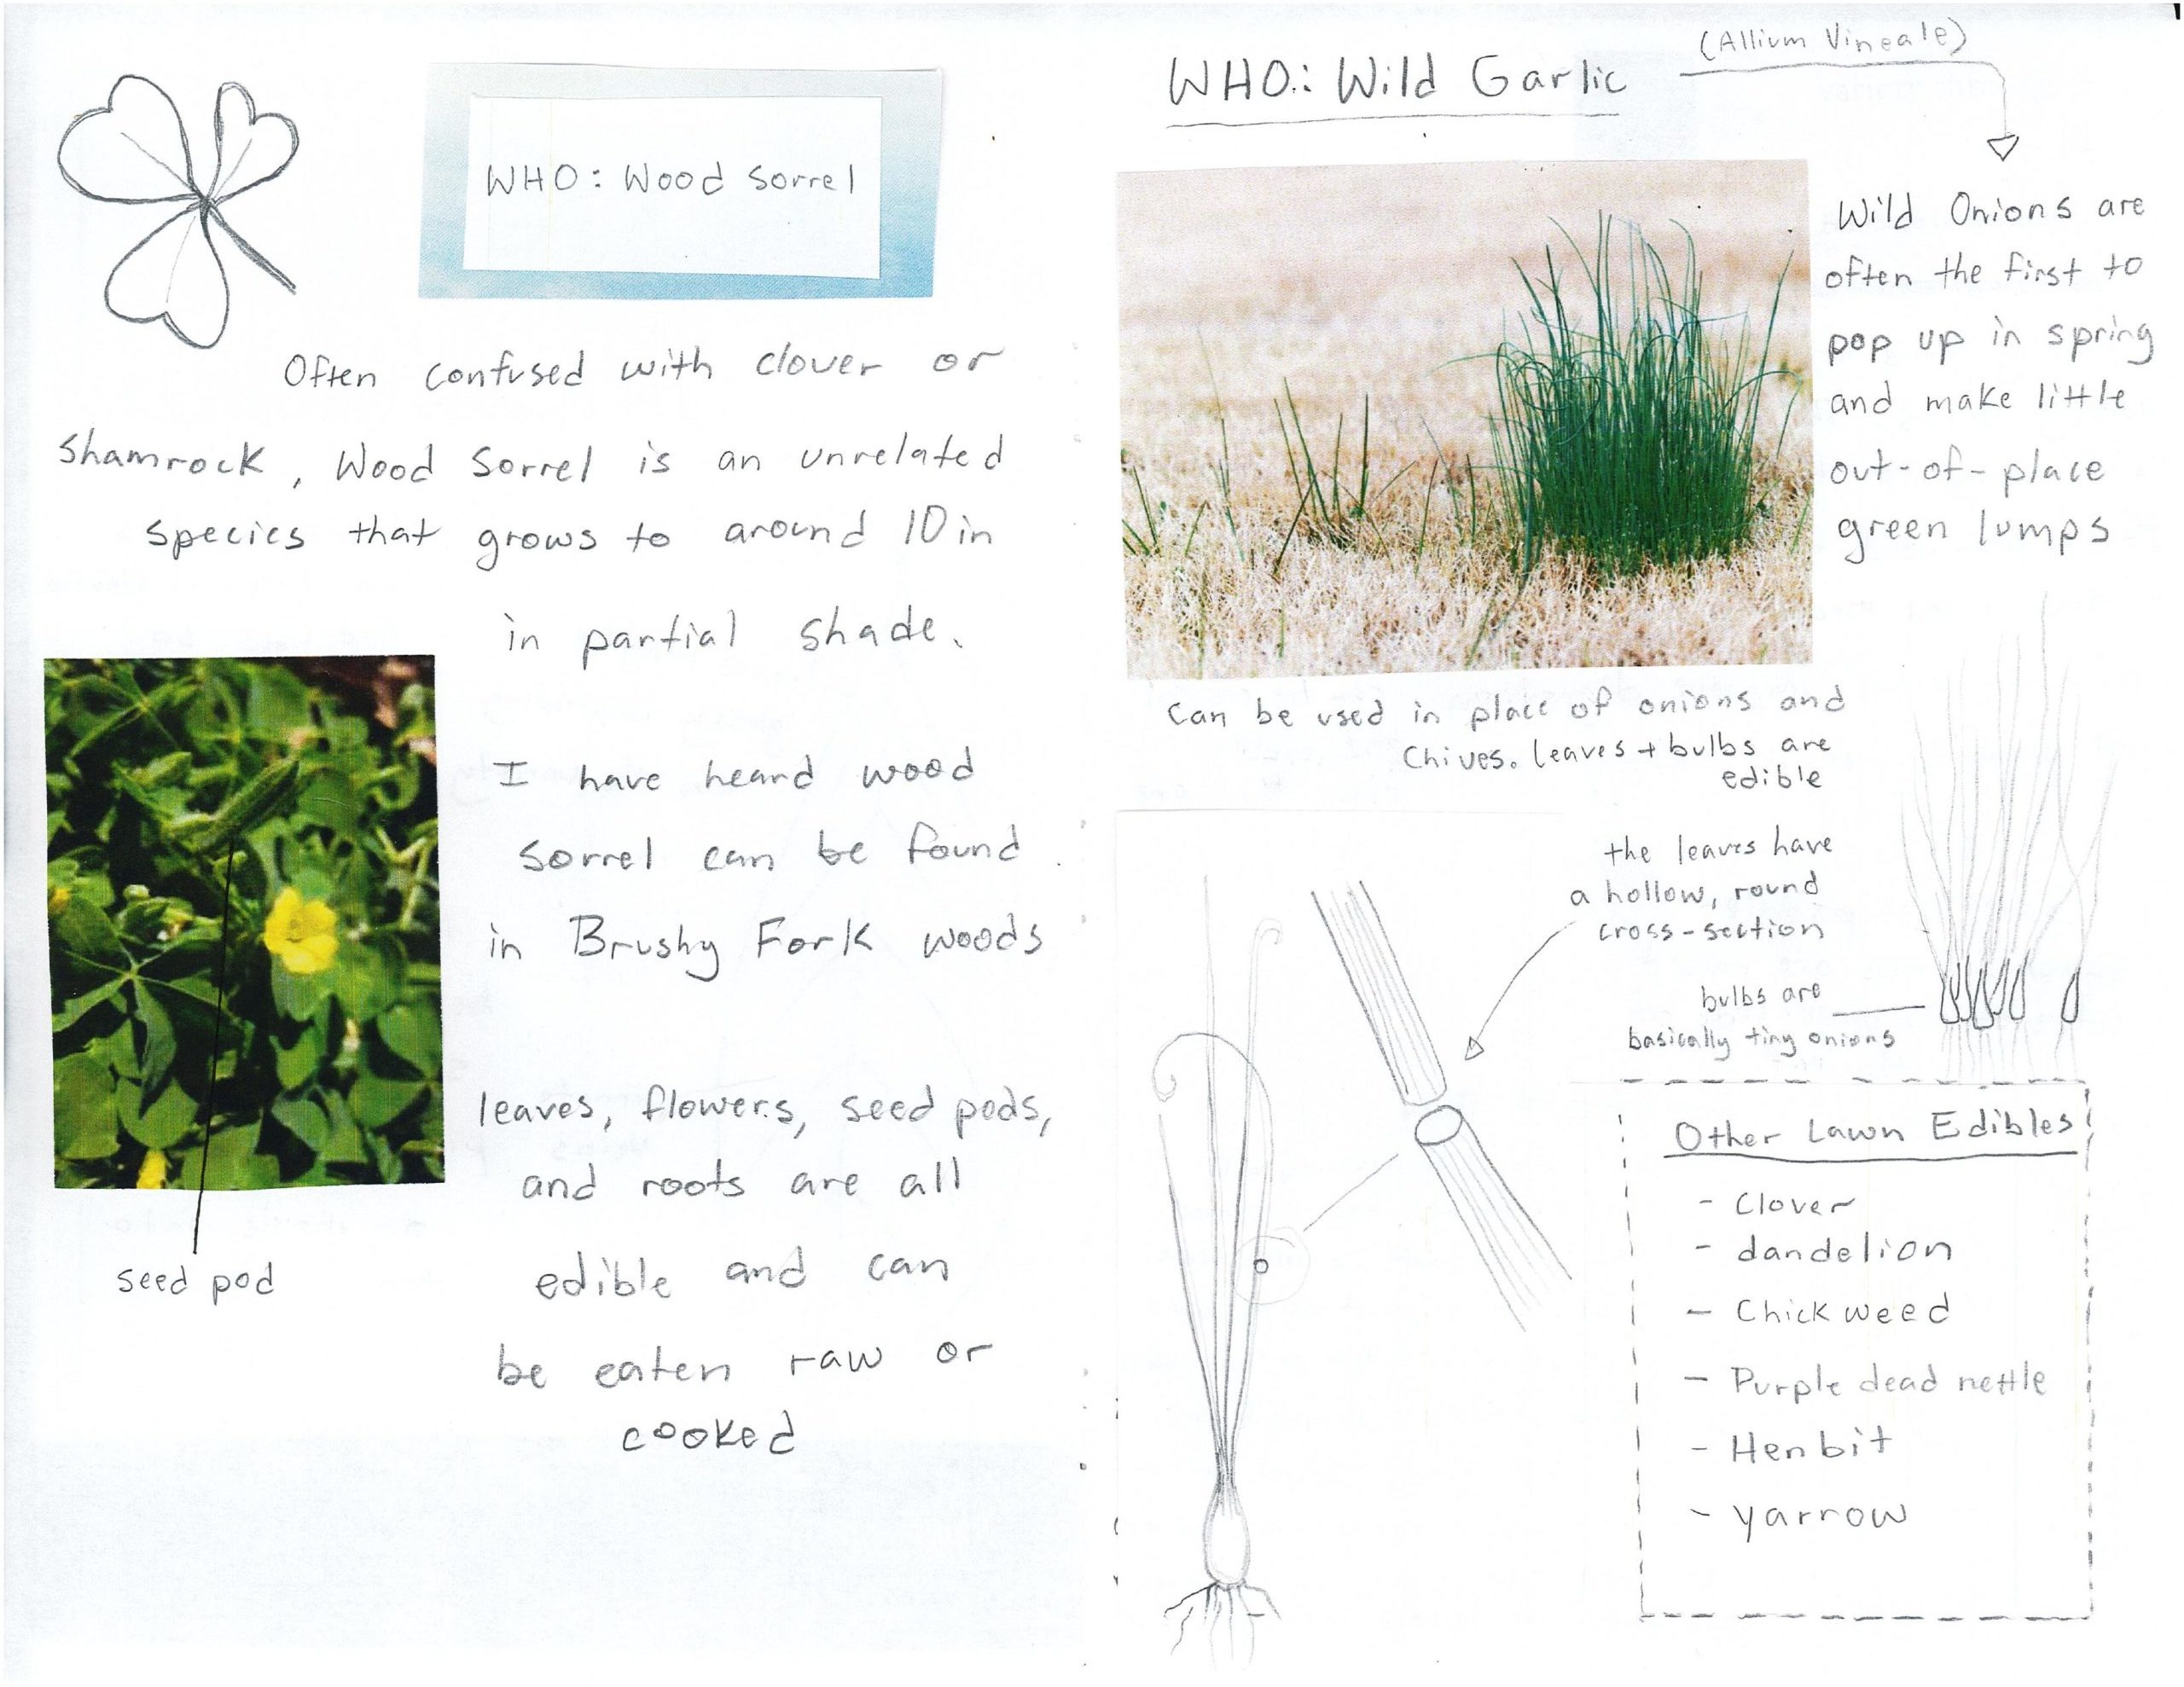 WHO: Wood Sorrel
Often confused with clover or
Shamrock, Wood Sorrel is an unrelated
species that grows to around 10 in
in partial shade.
I have heard wood
sorrel can be found
in Brushy Fork woods
leaves, flowers, seed pods,
and roots are all
edible and can
be eaten raw or
cooked
seed pod
WHO: Wild Garlic
(Allium Vineale)
Wild Onions are
often the first to
pop up in spring
and make little
out-of-place
green lumps
Can be used in place of onions and
Chives. leaves + bulbs are
edible
the leaves have
a hollow, round
cross-section
bulbs are
basically tiny onions
Other Lawn Edibles
- Clover
- dandelion
- Chickweed
- Purple dead nettle
- Henbit
- yarrow